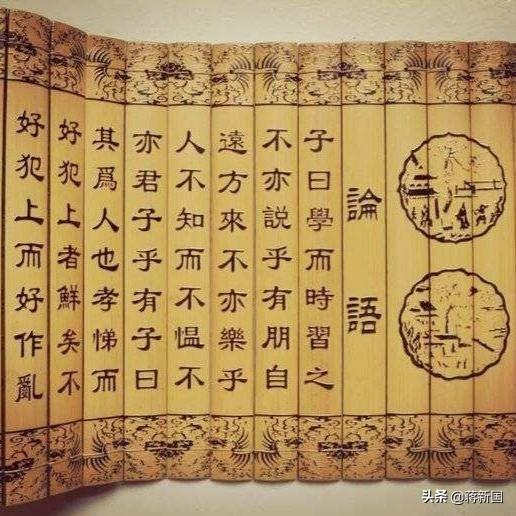 論語
子曰學而時習之
不亦說乎有朋自
遠方來不亦樂乎
人不知而不愠不
亦君子乎有子曰
其爲人也孝悌而
好犯上者鮮矣不
好犯上而好作亂
头条 @蒋新国